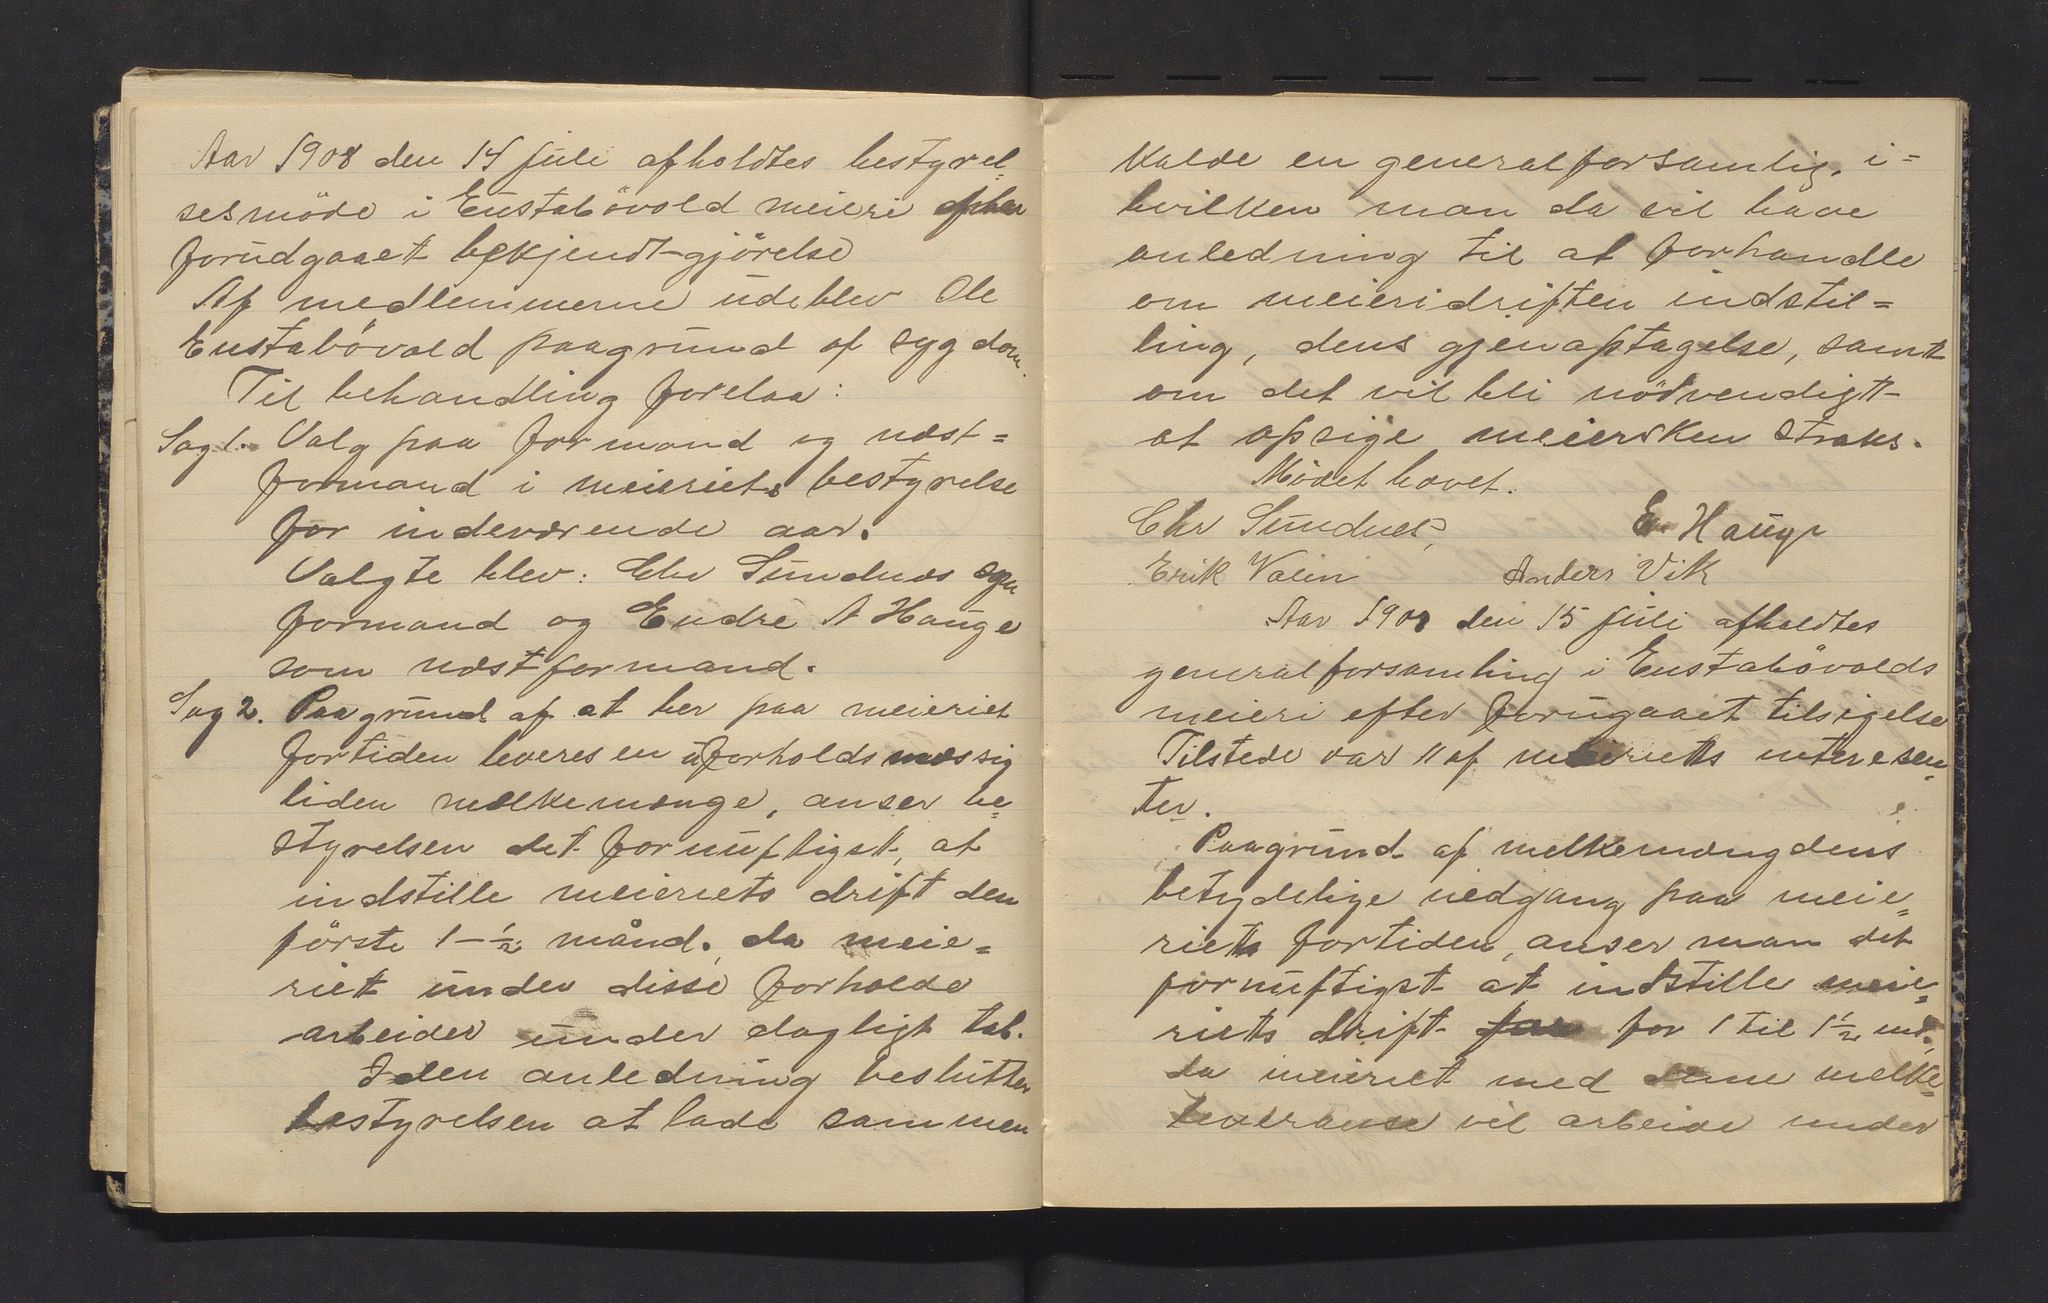 Aar 1908 den 14 juli afholdtes bestyrel-
sesmöde i Eustabövold meieri efter
forudgaaet bekjendt-gjörelse
Af medlemmerne udeblev Ole
Eustabövold paagrund af sygdom.
Til behandling forelaa:
Sag 1. Valg paa formand og næst=
formand i meieriets bestyrelse
for indeværende aar.
Valgte blev: Chr Sundnæs som
formand og Endre A Hauge
som næstformand.
Sag 2. Paa grund af at her paa meieriet
fortiden leveres en uforholdsmæssig
liden melkemænge, anser be=
styrelsen det fornuftigst, at
indstille meieriets drift den
förste 1-½ månd. da meie=
riet under disse forholde
arbeider under dagligt tab.
I den anledning beslutter
bestyrelsen at lade sammen
kalde en generalforsamlig. i=
hvilken man da vil have
anledning til at forhandle
om meieridriften indstil=
ling, dens gjenoptagelse, samt
om det vil bli nödvendigt
at opsige meiersken straks.
Mödet hævet.
Chr Sundnes, E. Hauge
Erik Valen Anders Vik
Aar 1908 den 15 juli afholdtes
generalforsamling i Eustabövolds
meieri efter forugaaet tilsigelse
Tilstede var 11 af meieriets interesen=
ter.
Paagrund af melkemængdens
betydelige nedgang paa meie=
riets fortiden, anser man det
fornuftigst at indstille meie=
riets drift for for 1 til 1½ md.,
da meieriet med denne melke=
leverance vil arbeide under